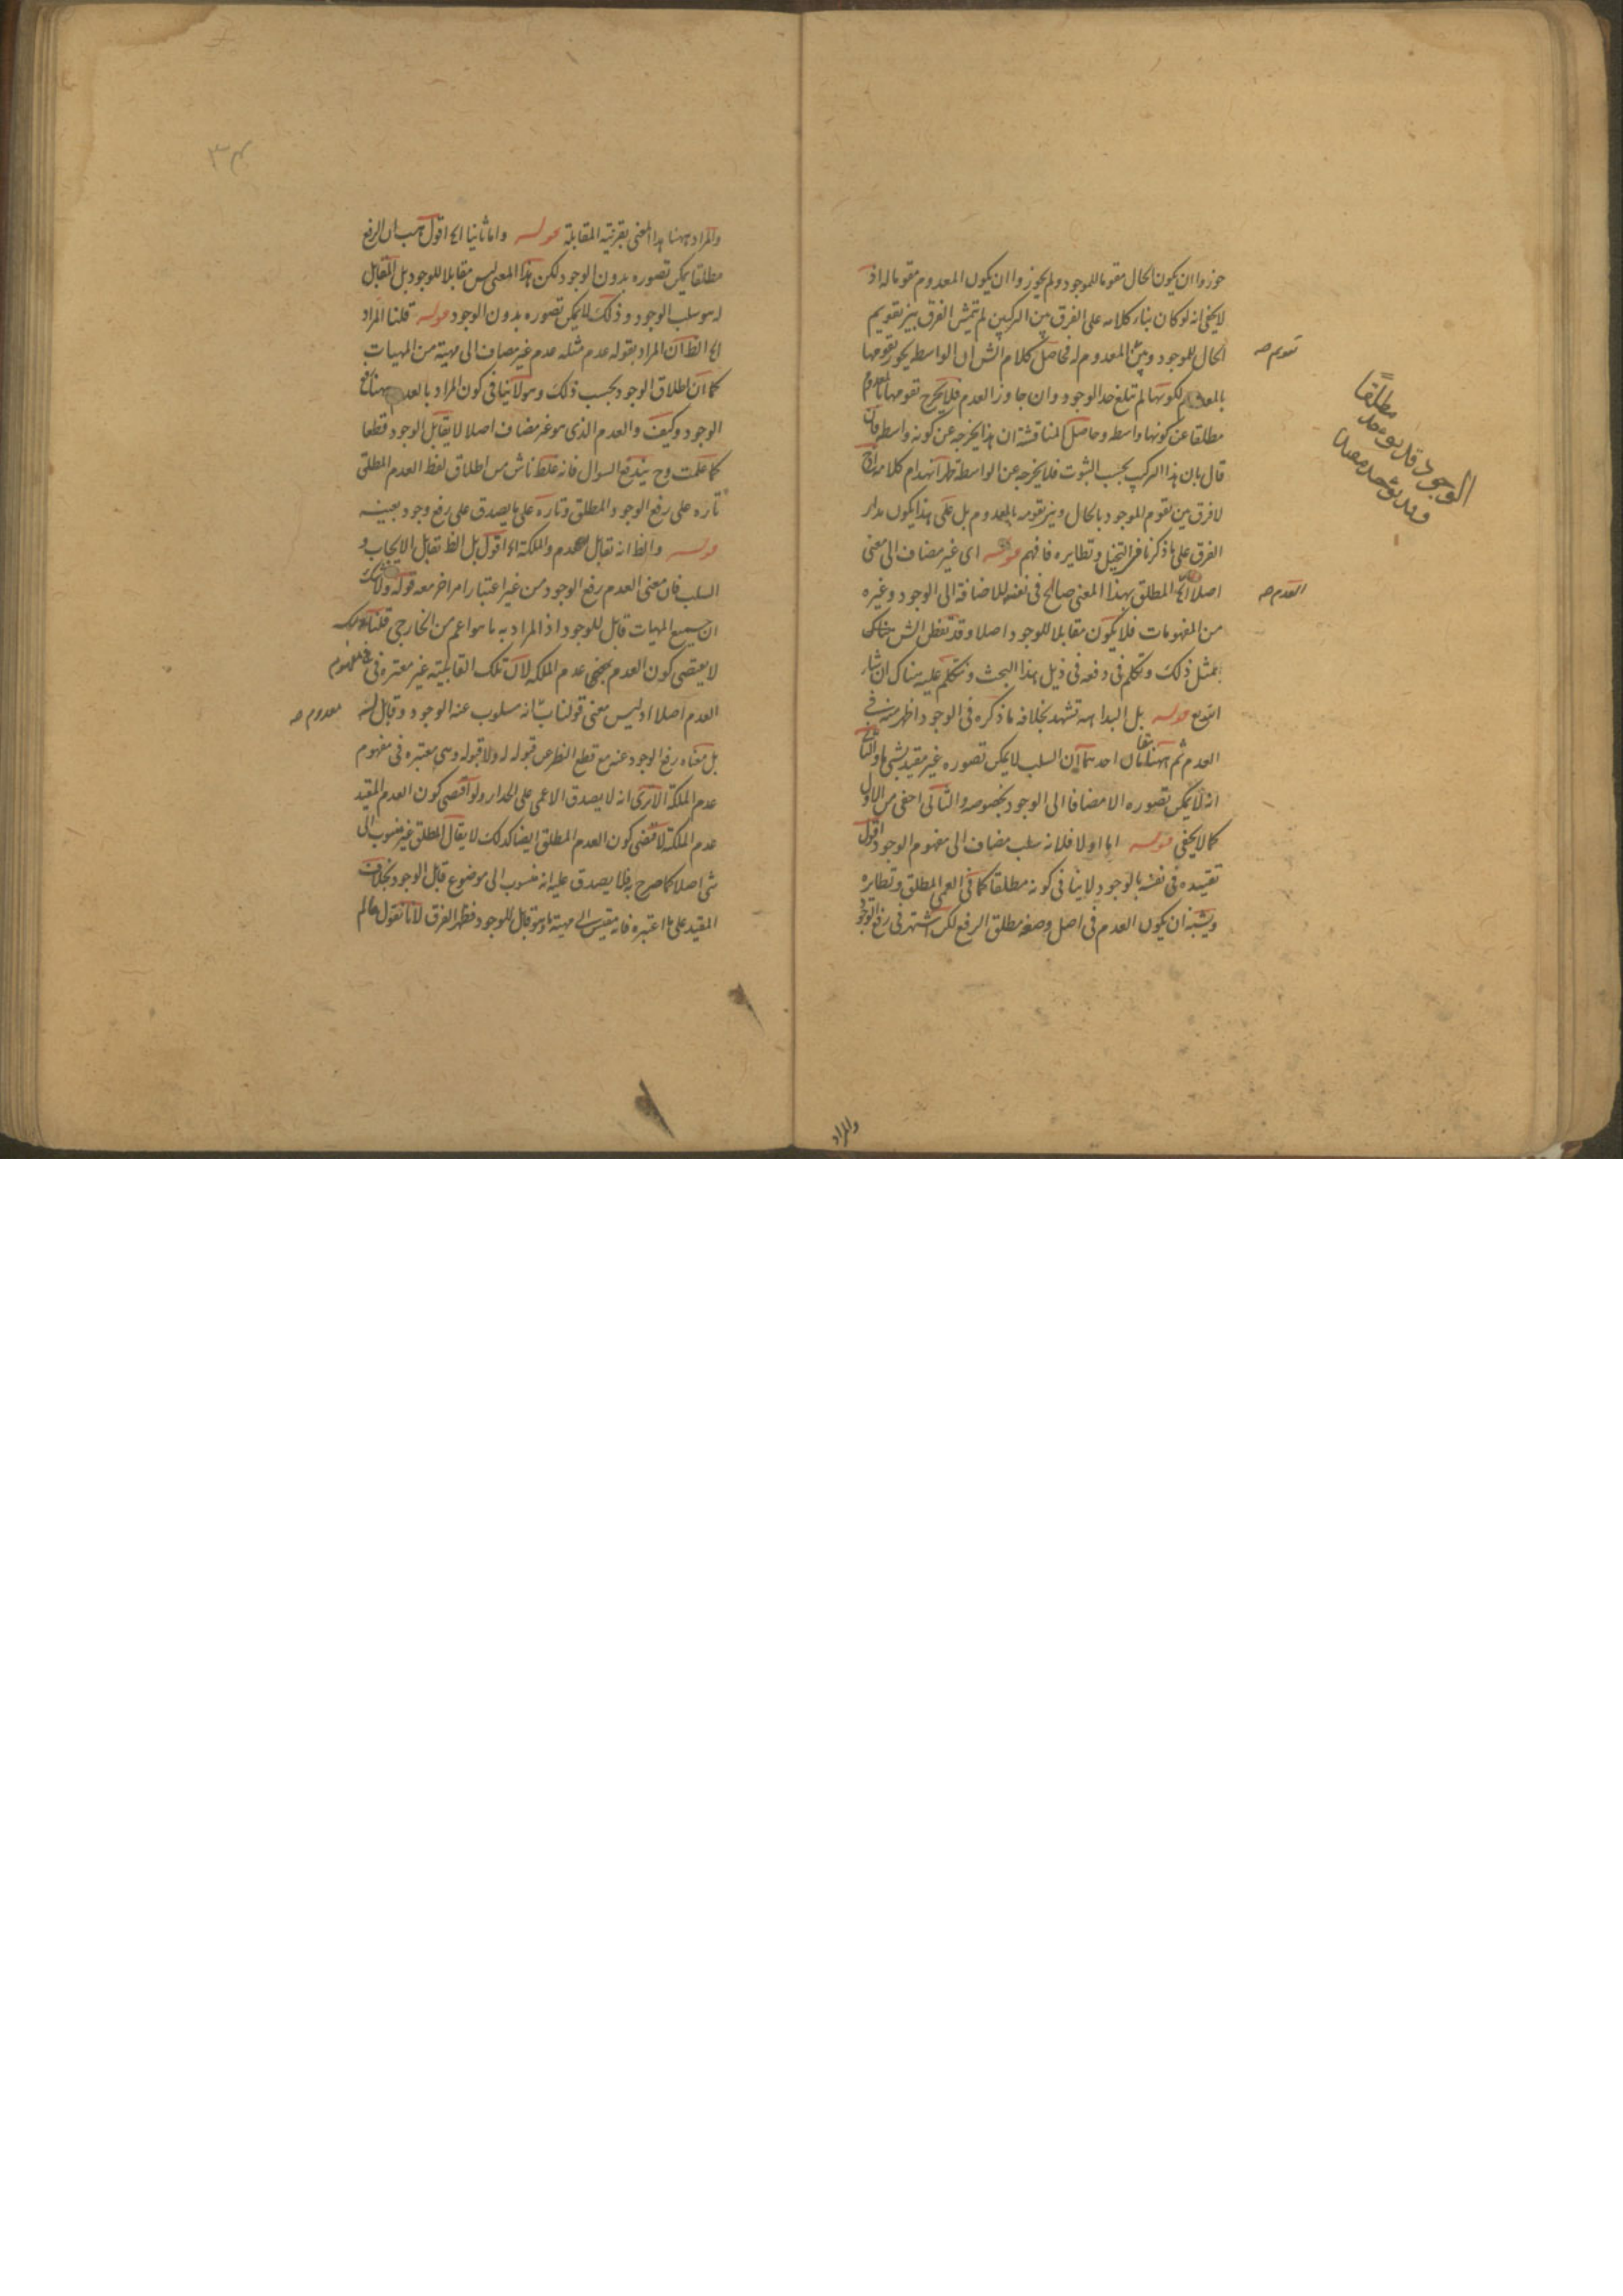 جوزوا ان يكون الحال مقوما للموجود ولم يجوزوا ان يكون المعدوم مقوما له اذ
لا يخفى انه لو كان بناء كلامه على الفرق بين التركيبين لم يتمش الفرق بين تقويم
الحال للموجود وبين المعدوم له فحاصل كلام الش ان الواسطه يجوز تقومها
تقويم صح
بالمعدوم لكونها لم تبلغ حد الوجود وان جاوز العدم فلا يخرج تقومها بالمعدوم
مطلقا عن كونها واسطه وحاصل المناقشة ان هذا يخرجه عن كونه واسطه فان
قال بان هذا التركيب بحسب الثبوت فلا يخرجه عن الواسطة ظهر انهدام كلامه اذ ح
لا فرق بين تقوم الموجود بالحال وبين تقومه بالمعدوم بل على هذا يكون مدار
الفرق على ما ذكرنا فى التخيل ونظايره فافهم قوله اى غير مضاف الى معنى
اصلا الخ المطلق بهذا المعنى صالح فى نفسه للاضافة الى الوجود وغيره
العدم صح
من المفهومات فلا يكون مقابلا للوجود اصلا وقد تفطن الش هناك
بمثل ذلك وتكلم فى دفعه فى ذيل هذا البحث ونتكلم عليه هناك ان شاء
الله تع قوله بل البداهه تشهد بخلافه ما ذكره فى الوجود اظهر منه فى
العدم ثم ههنا مقامان احدهما ان السلب لا يمكن تصوره غير مقيد بشى ما والثانى
انه لا يمكن تصوره الا مضافا الى الوجود بخصوصه والثانى اخفى من الاول
كما لا يخفى قوله اما اولا فلانه سلب مضاف الى مفهوم الوجود اقول
تقييده فى نفسه بالوجود لا ينافى كونه مطلقا كما فى العمى المطلق ونظايره
ويشبه ان يكون العدم فى اصل وضعه مطلق الرفع لكن اشتهر فى رفع الوجود
مطلقًا
الوجود قد يوخذ
وقد يوخذ مقيدا
والمراد
والمراد ههنا هذا المعنى بقرينة المقابلة قوله واما ثانيا الخ اقول هب ان الرفع
مطلقا يمكن تصوره بدون الوجود لكن هذا المعنى ليس مقابلا للوجود بل المقابل
له هو سلب الوجود وذلك لا يمكن تصوره بدون الوجود قوله قلنا المراد
الخ الظ ان المراد بقوله عدم مثله عدم غير مضاف الى مهية من المهيات
كما ان اطلاق الوجود بحسب ذلك وهو لا ينافى كون المراد بالعدم ههنا رفع
الوجود وكيف والعدم الذى هو غير مضاف اصلا لا يقابل الوجود قطعا
كما علمت وح يندفع السوال فانه غلط ناش من اطلاق لفظ العدم المطلق
تاره على رفع الوجود المطلق وتاره على ما يصدق على رفع وجود بعينه
قوله والظ انه تقابل العدم والملكة الخ اقول بل الظ تقابل الايجاب و
السلب فان معنى العدم رفع الوجود من غير اعتبار امر اخر معه قوله ولا شك
ان جميع المهيات قابل للوجود اذ المراد به ما هو اعم من الخارجى قلنا ذلك
لا يقتضى كون العدم بمعنى عدم الملكه لان تلك القابلية غير معتبره فى مفهوم
العدم اصلا اذ ليس معنى قولنا ب انه مسلوب عنه الوجود وقابل له
معدوم صح
بل معناه رفع الوجود عنه مع قطع النظر عن قبوله له ولا قبوله وهى معتبره فى مفهوم
عدم الملكة الا ترى انه لا يصدق الاعمى على الجدار ولو اقتضى كون العدم المقيد
عدم الملكة لاقتضى كون العدم المطلق ايضا كذلك لا يقال المطلق غير منسوب الى
شى اصلا كما صرح به فلا يصدق عليه انه منسوب الى موضوع قابل الوجود بخلاف
المقيد على ما اعتبره فانه مقيس الى مهية ما وهو قابل للوجود فظهر الفرق لانا نقول ما لم